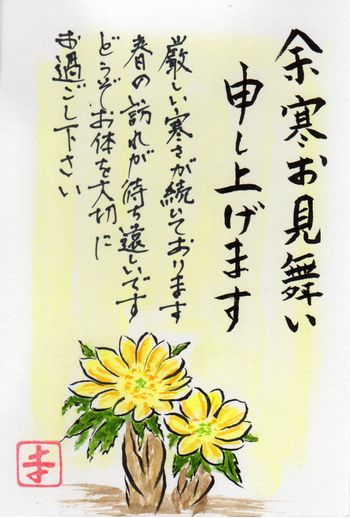 余寒お見舞い
申し上げます
厳しい寒さが続いております
春の訪れが待ち遠しいです
どうぞお体を大切に
お過ごし下さい